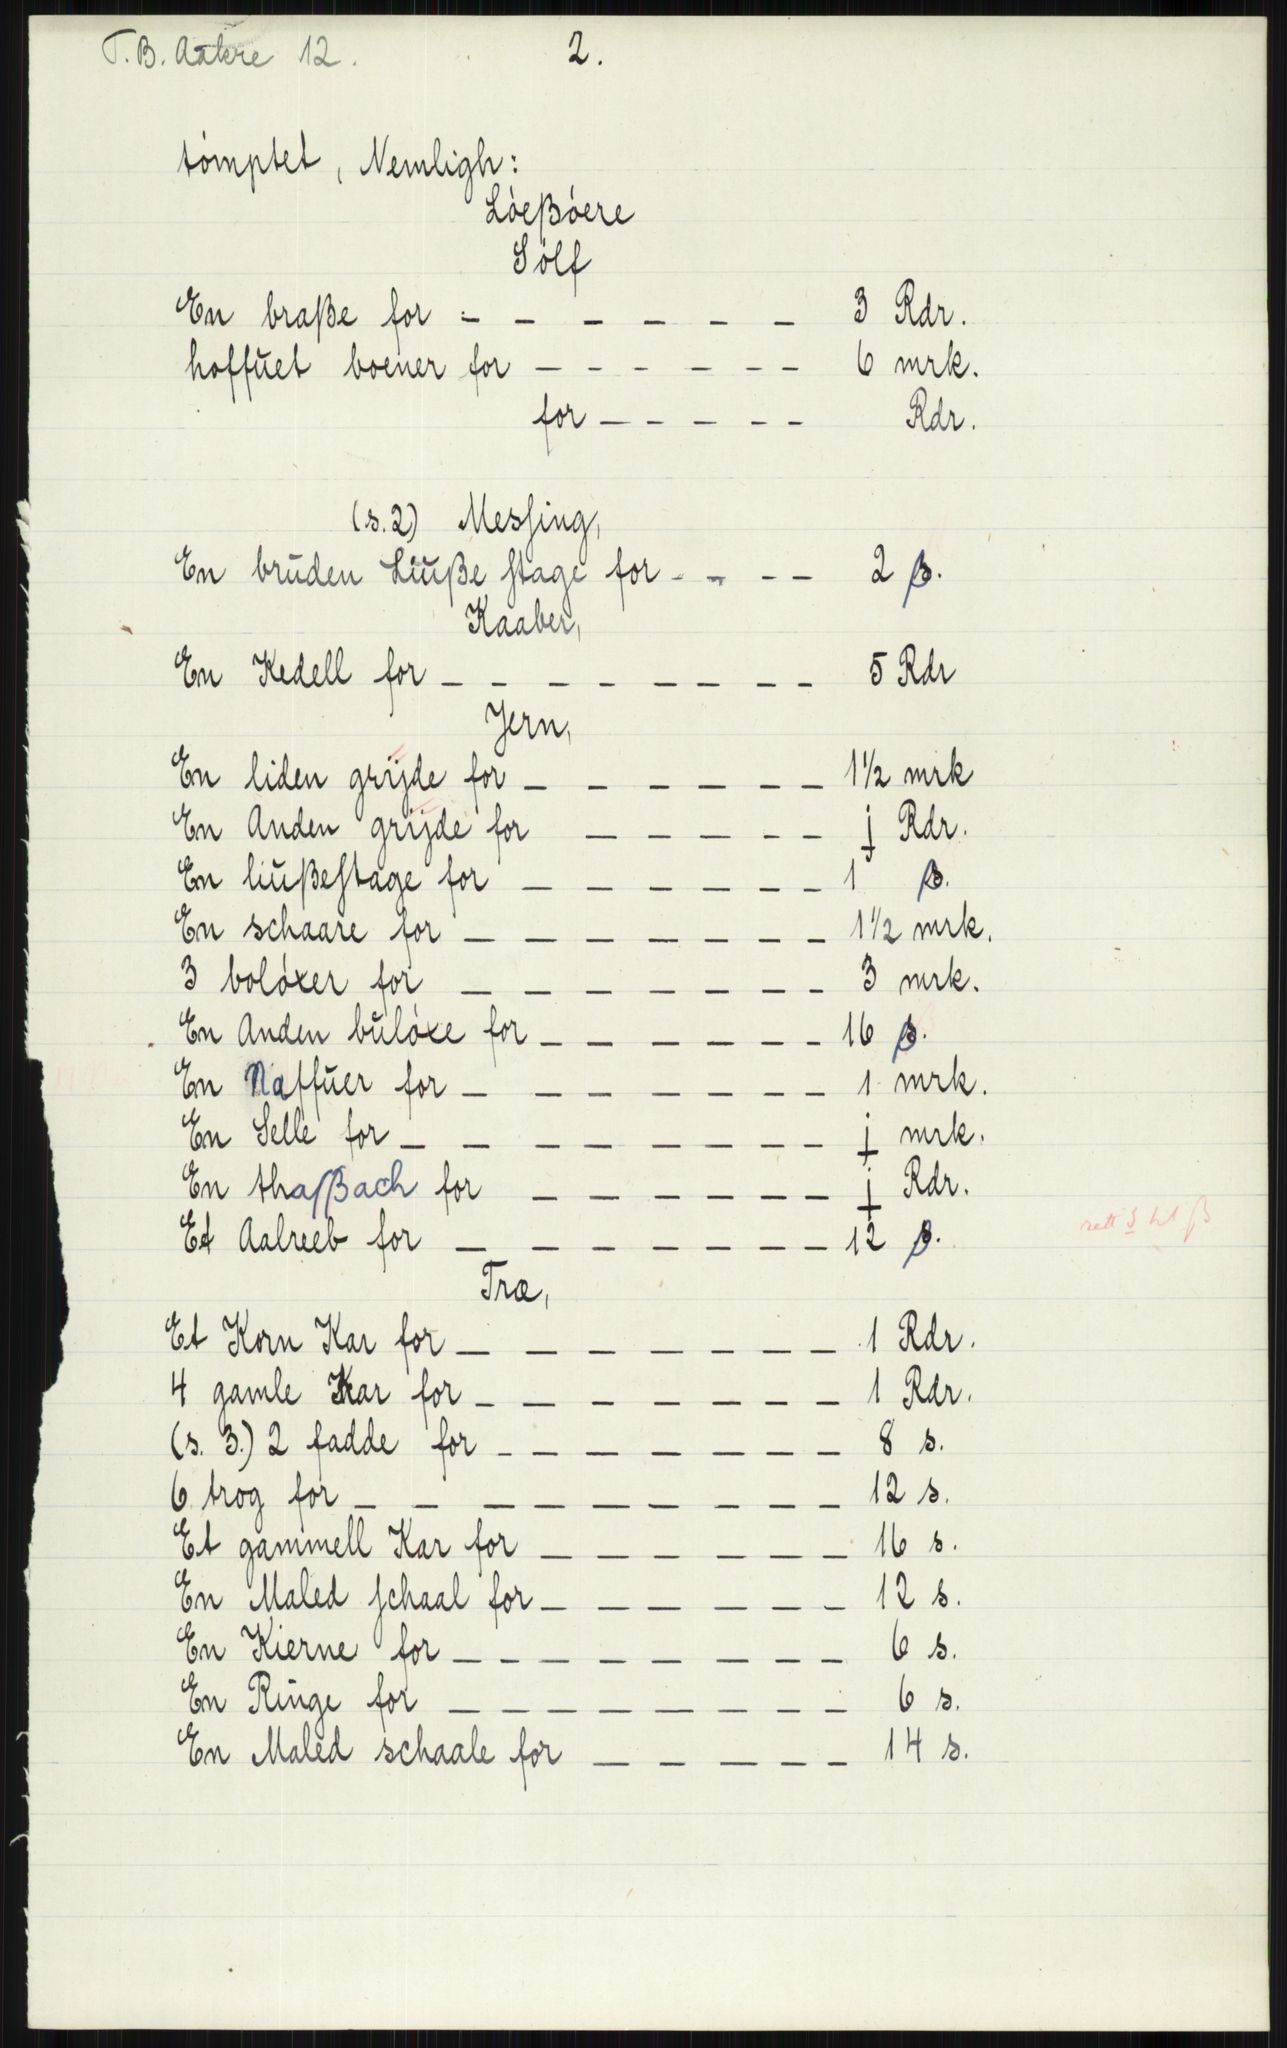 T.B. Aakre 12. 2.
tómptet, Nemligh:
Lóeßóere
Sólf
En braße for - - - - - - - 3 Rdr.
hoffŭet boener for - - - - - - 6 mrk.
for - - - - - Rdr.
(s.2) Messing,
En brŭden Liŭße stage for - - - - 2 ß.
Kaaber,
En Kedell for - - - - - - - - 5 Rdr
Jern,
En liden grijde for - - - - - - 1½ mrk
En Anden grijde for - - - - - j Rdr.
En liŭßestage for - - - - - - 1 ß.
En schaare for - - - - - - - 1½ mrk.
3 bolóxer for - - - - - - - 3 mrk.
En Anden bŭlóxe for - - - - - - 16 ß.
En Naffŭer for - - - - - - - 1 mrk.
En Selle for - - - - - - - - j mrk.
En thaßbach for - - - - - - j Rdr.
Et Aalreeb for - - - - - - - 12 ß.
Træ,
Et Korn Kar for - - - - - - - 1 Rdr.
4 gamle Kar for - - - - - - - 1 Rdr.
(s. 3.) 2 fadde for - - - - - - - 8 s.
6 trog for - - - - - - - - - 12 s.
Et gammell Kar for - - - - - - 16 s.
En Maled schaal for - - - - - - 12 s.
En Kierne for - - - - - - - - 6 s.
En Ringe for - - - - - - - - 6 s.
En Maled schaale for - - - - - 14 s.